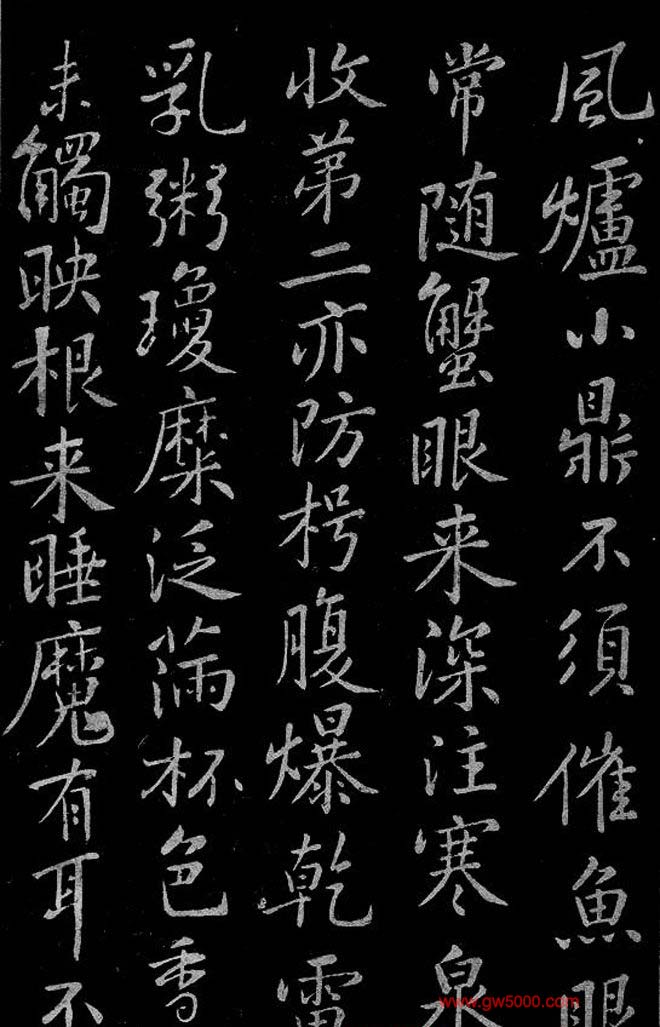 風爐小鼎不須催魚眼
常随蟹眼来深注寒泉
收苐二亦防枵腹爆乾雷
乳粥瓊糜泛满杯色香
未觸映根来睡魔有耳不
www.gw5000.com